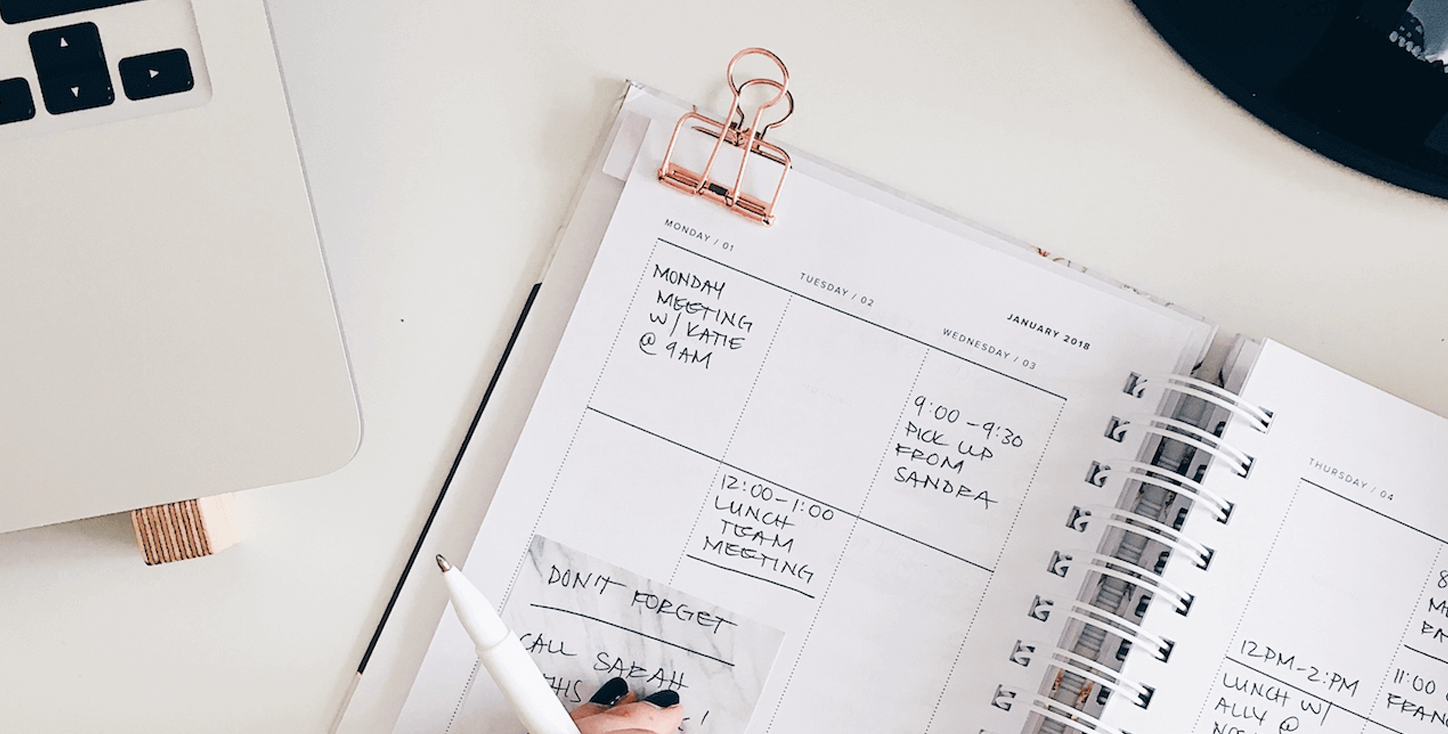 MONDAY / 01
MONDAY
MEETING
W/ KATIE
@ 9AM
TUESDAY / 02
12:00-1:00
LUNCH
TEAM
MEETING
JANUARY 2018
WEDNESDAY / 03
9:00-9:30
PICK UP
FROM
SANDRA
DON'T FORGET
CALL SARAH
THIS
!
THURSDAY / 04
12PM-2:PM
LUNCH W/
ALLY @
8
11:00